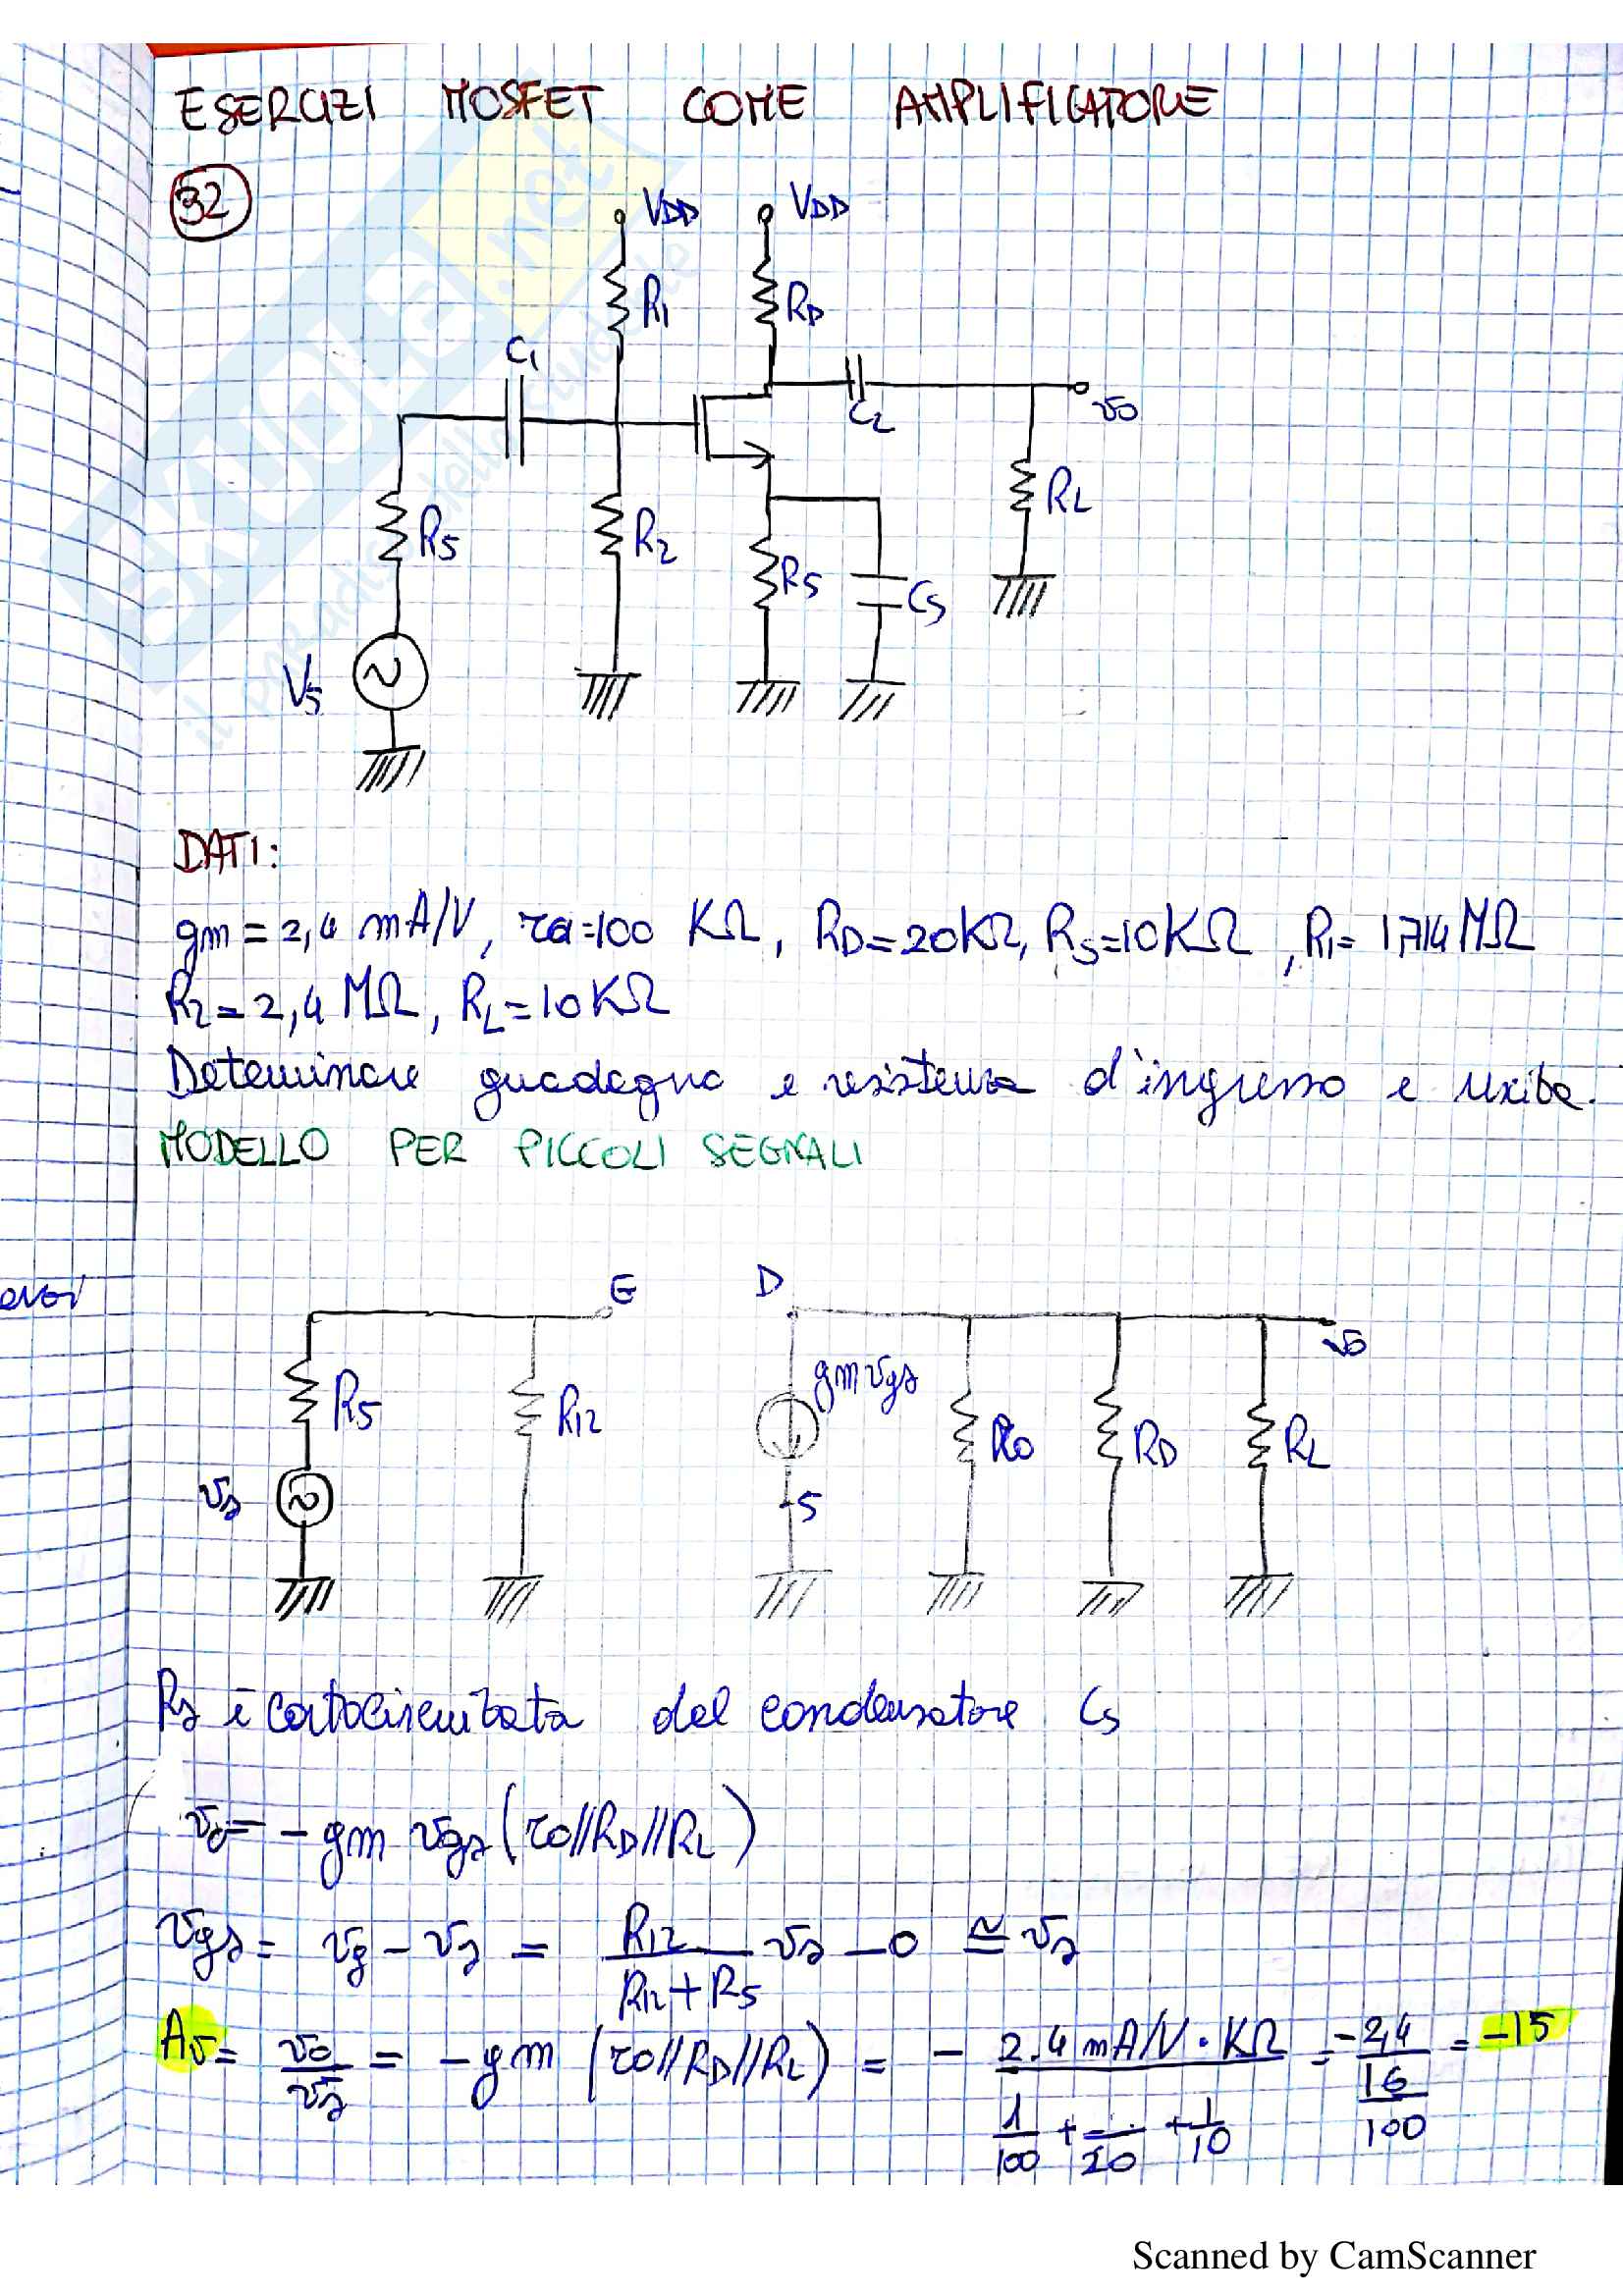 ESERCIZI MOSFET COME AMPLIFICATORE
32
VDD VDD
R1 RD
C1
C2 vo
RS R2 RS CS RL
VS
DATI:
gm = 2,4 mA/V, ro=100 KΩ, RD=20KΩ, RS=10KΩ, R1= 1,714MΩ
R2 = 2,4 MΩ, RL=10KΩ
Determinare guadagno e resistenza d'ingresso e uscita.
MODELLO PER PICCOLI SEGNALI
G D
vo
gm vgs
RS R12 Ro RD RL
vs S
Rs è cortocircuitata dal condensatore Cs
vo = - gm vgs (ro//RD//RL)
vgs = vg - vs = R12/(R12+RS) vs - 0 ≅ vs
Av = vo/vs = -gm (ro//RD//RL) = - 2.4 mA/V · KΩ / (1/100 + /20 + 1/10) = -2,4/(16/100) = -15
Scanned by CamScanner